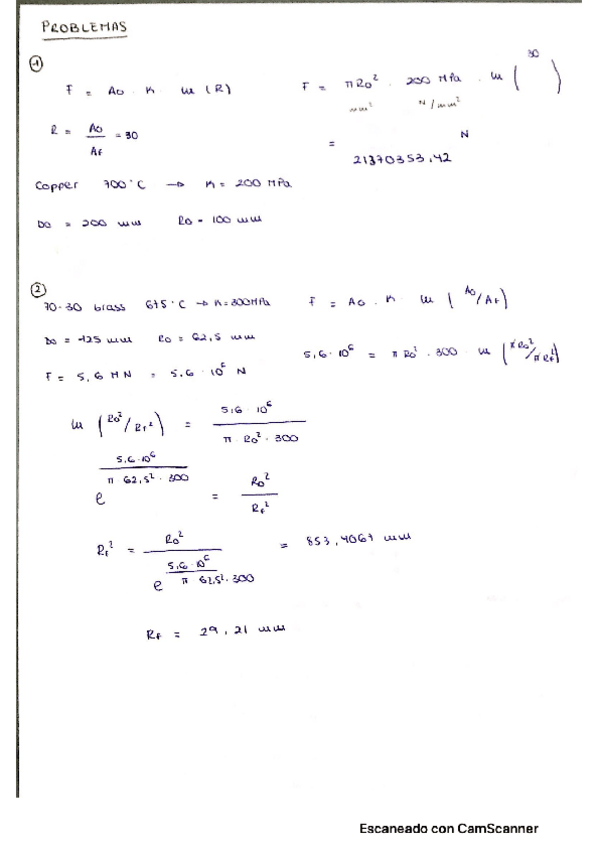 PROBLEMAS
1
F = A0 · K · ln (R)
F = π R0² · 200 MPa · ln ( 30 )
mm² N/mm²
R = A0 / AF = 30
= 21370353,42 N
Copper 700°C → K = 200 MPa
D0 = 200 mm R0 = 100 mm
2
70-30 brass 675°C → K=300MPa F = A0 · K · ln ( A0/AF )
D0 = 125 mm R0 = 62,5 mm
5,6 · 10⁶ = π R0² · 300 · ln ( πR0²/πRF² )
F = 5,6 MN = 5,6 · 10⁶ N
ln ( R0²/RF² ) = 5,6 · 10⁶ / π · R0² · 300
e^(5,6·10⁶ / π 62,5² · 300) = R0² / RF²
RF² = R0² / e^(5,6·10⁶ / π 62,5²·300) = 853,4067 mm
RF = 29,21 mm
Escaneado con CamScanner